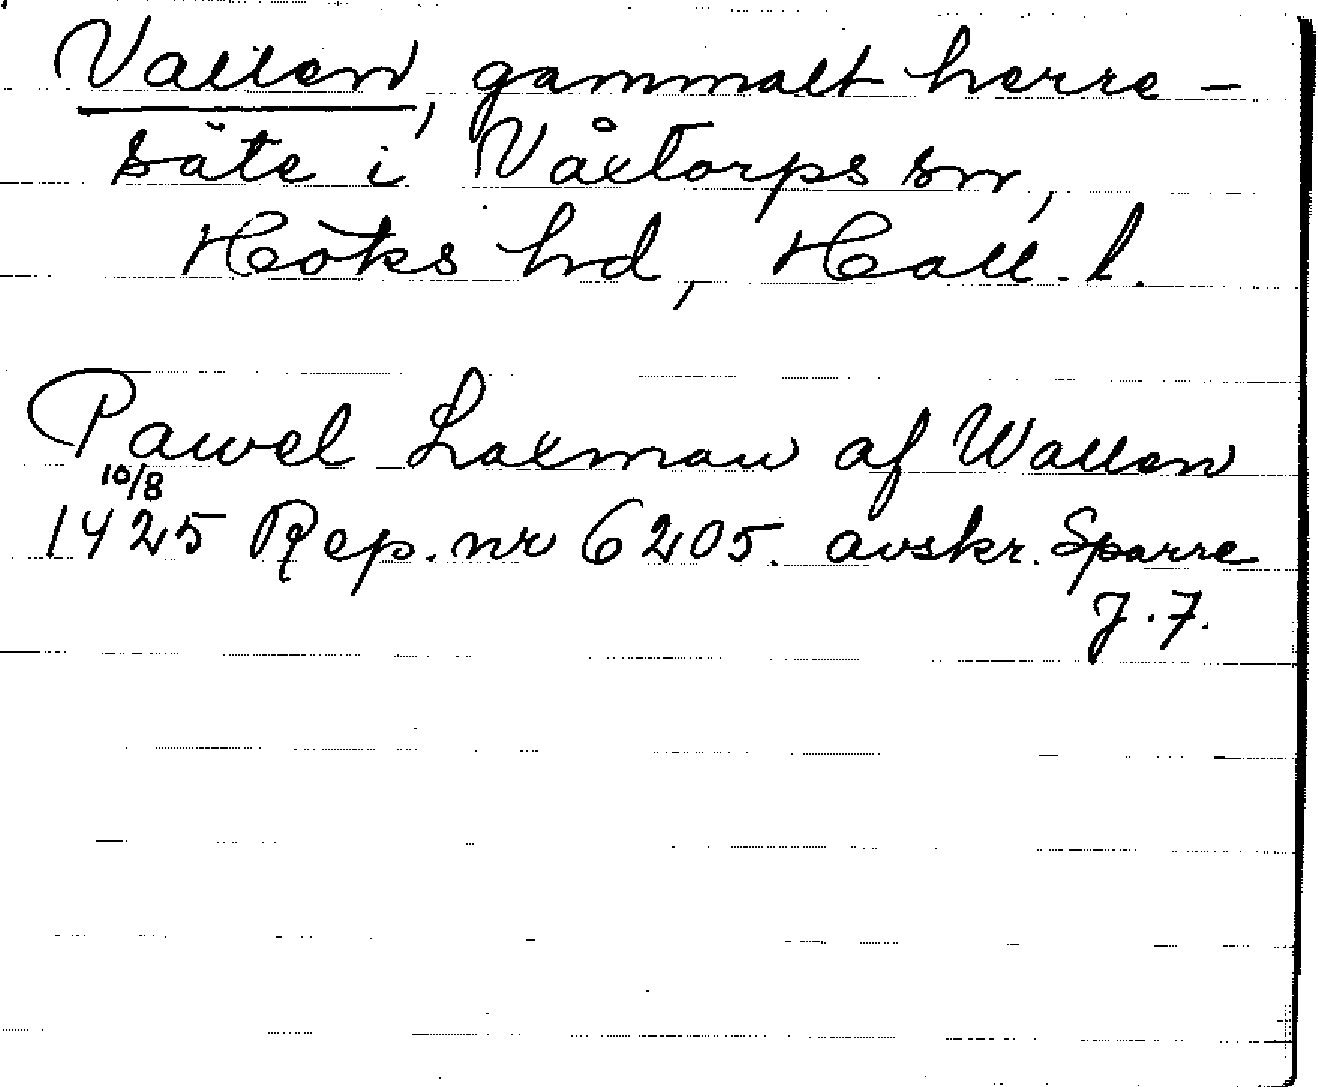 Vallen, gammalt herre-
säte i Våxtorps sn,
Höks hd, Hall. l.
Pawel Laxman af Wallen
10/8
1425 Rep. nr 6205. avskr. Sparre
J. F.